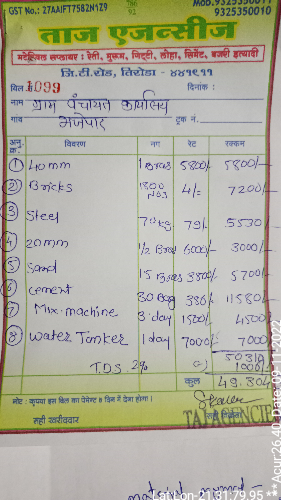 GST No.: 27AAIFT7582N1Z9
786
92
Mob.9325350011
9325350010
ताज एजन्सीज
मटेरियल सप्लायर : रेती, मुरूम, गिट्टी, लोहा, सिमेंट, बजरी इत्यादी
जि.टी.रोड, तिरोडा - ४४१९११
बिल क्र. 1099 दिनांक :
नाम ग्राम पंचायत कार्यालय
गांव भजेपार ट्रक नं.
अनु. क्र. विवरण नग रेट रक्कम
① 40mm 1 Bras 5800/- 5800/-
② Bricks 1800 nos 4/- 7200/-
③ Steel 70 kg 79/- 5530
④ 20mm 1/2 Bras 6000/- 3000/-
⑤ Sand 1.5 Bras 3800/- 5700/-
⑥ cement 30 Bag 386/- 11580/-
⑦ Mix. machine 3 day 1500/- 4500/-
⑧ water Tanker 1 day 7000/- 7000/-
50310
TDS 2% 1006/-
कुल 49,304/-
नोट : कृपया इस बिल का पेमेन्ट ७ दिन में देना होगा।
सही खरीददार सही विक्रेता
TAJ AGENCIE
Lat Lon-21.31:79.95
***Acur:26.40, Date:09-11-2022